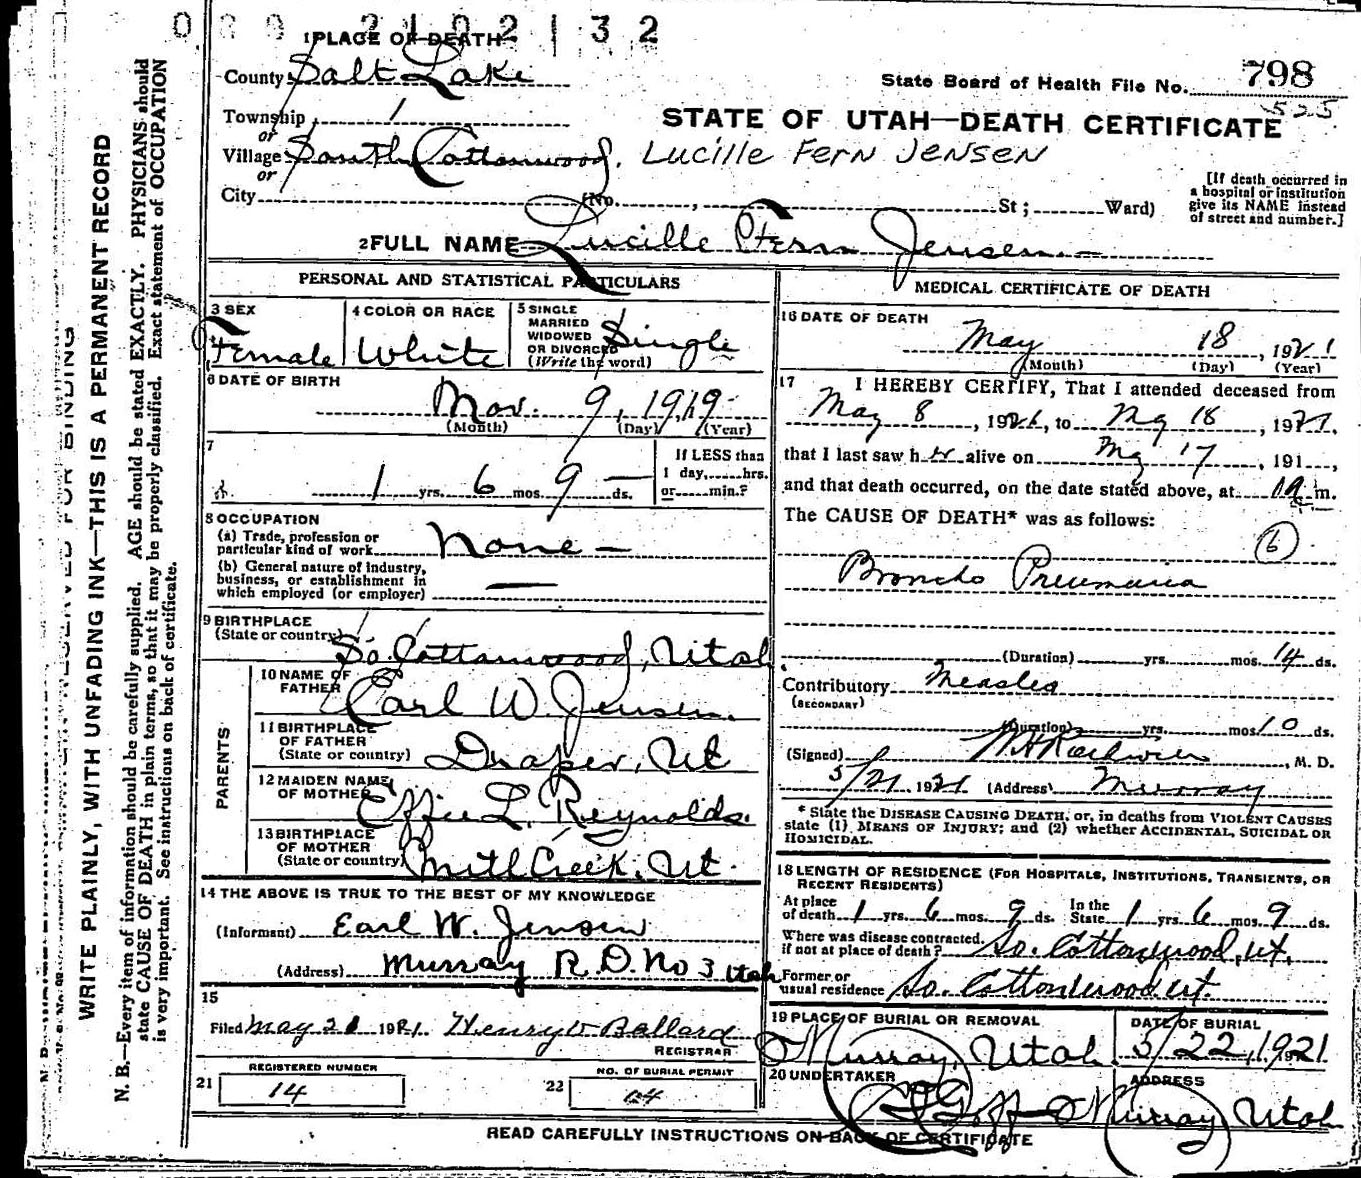 2102132
1 PLACE OF DEATH
County Salt Lake
State Board of Health File No. 798
525
Township 1
or
STATE OF UTAH—DEATH CERTIFICATE
Village South Cottonwood. Lucille Fern Jensen
or
City (No. , St ; Ward)
[If death occurred in
a hospital or institution
give its NAME instead
of street and number.]
2 FULL NAME Lucille Fern Jensen
PERSONAL AND STATISTICAL PARTICULARS
3 SEX
Female
4 COLOR OR RACE
White
5 SINGLE
MARRIED
WIDOWED
OR DIVORCED
(Write the word)
Single
6 DATE OF BIRTH
Nov. 9, 1919
(Month) (Day) (Year)
7
1 yrs. 6 mos. 9 ds.
If LESS than
1 day, hrs.
or min.?
8 OCCUPATION
(a) Trade, profession or
particular kind of work None
(b) General nature of industry,
business, or establishment in
which employed (or employer) —
9 BIRTHPLACE
(State or country) So. Cottonwood, Utah.
PARENTS
10 NAME OF
FATHER Earl W. Jensen.
11 BIRTHPLACE
OF FATHER
(State or country) Draper, Ut
12 MAIDEN NAME
OF MOTHER Effie L. Reynolds.
13 BIRTHPLACE
OF MOTHER
(State or country) Mill Creek, Ut.
14 THE ABOVE IS TRUE TO THE BEST OF MY KNOWLEDGE
(Informant) Earl W. Jensen
(Address) Murray R.D. No 3 Utah
15
Filed May 21 1921. Henry W Ballard
REGISTRAR
REGISTERED NUMBER
21 14
NO. OF BURIAL PERMIT
22
MEDICAL CERTIFICATE OF DEATH
16 DATE OF DEATH
May 18, 1921
(Month) (Day) (Year)
17 I HEREBY CERTIFY, That I attended deceased from
May 8, 1921, to My 18, 1921.
that I last saw her alive on My 17, 191 ,
and that death occurred, on the date stated above, at m.
The CAUSE OF DEATH* was as follows:
6
Broncho Pneumonia
(Duration) yrs. mos. 14 ds.
Contributory Measles
(SECONDARY)
(Duration) yrs. mos. 10 ds.
(Signed) , M. D.
5/21 1921 (Address) Murray
* State the DISEASE CAUSING DEATH, or, in deaths from VIOLENT CAUSES
state (1) MEANS OF INJURY; and (2) whether ACCIDENTAL, SUICIDAL OR
HOMICIDAL.
18 LENGTH OF RESIDENCE (FOR HOSPITALS, INSTITUTIONS, TRANSIENTS, OR
RECENT RESIDENTS)
At place
of death 1 yrs. 6 mos. 9 ds. In the
State 1 yrs 6 mos. 9 ds.
Where was disease contracted
if not at place of death? So. Cottonwood, Ut.
Former or
usual residence So. Cottonwood Ut.
19 PLACE OF BURIAL OR REMOVAL
Murray, Utah
DATE OF BURIAL
5/22, 1921
20 UNDERTAKER
Goff
ADDRESS
Murray Utah
READ CAREFULLY INSTRUCTIONS ON BACK OF CERTIFICATE
RESERVED FOR BINDING
WRITE PLAINLY, WITH UNFADING INK—THIS IS A PERMANENT RECORD
N. B.—Every item of information should be carefully supplied. AGE should be stated EXACTLY. PHYSICIANS should
state CAUSE OF DEATH in plain terms, so that it may be properly classified. Exact statement of OCCUPATION
is very important. See instructions on back of certificate.